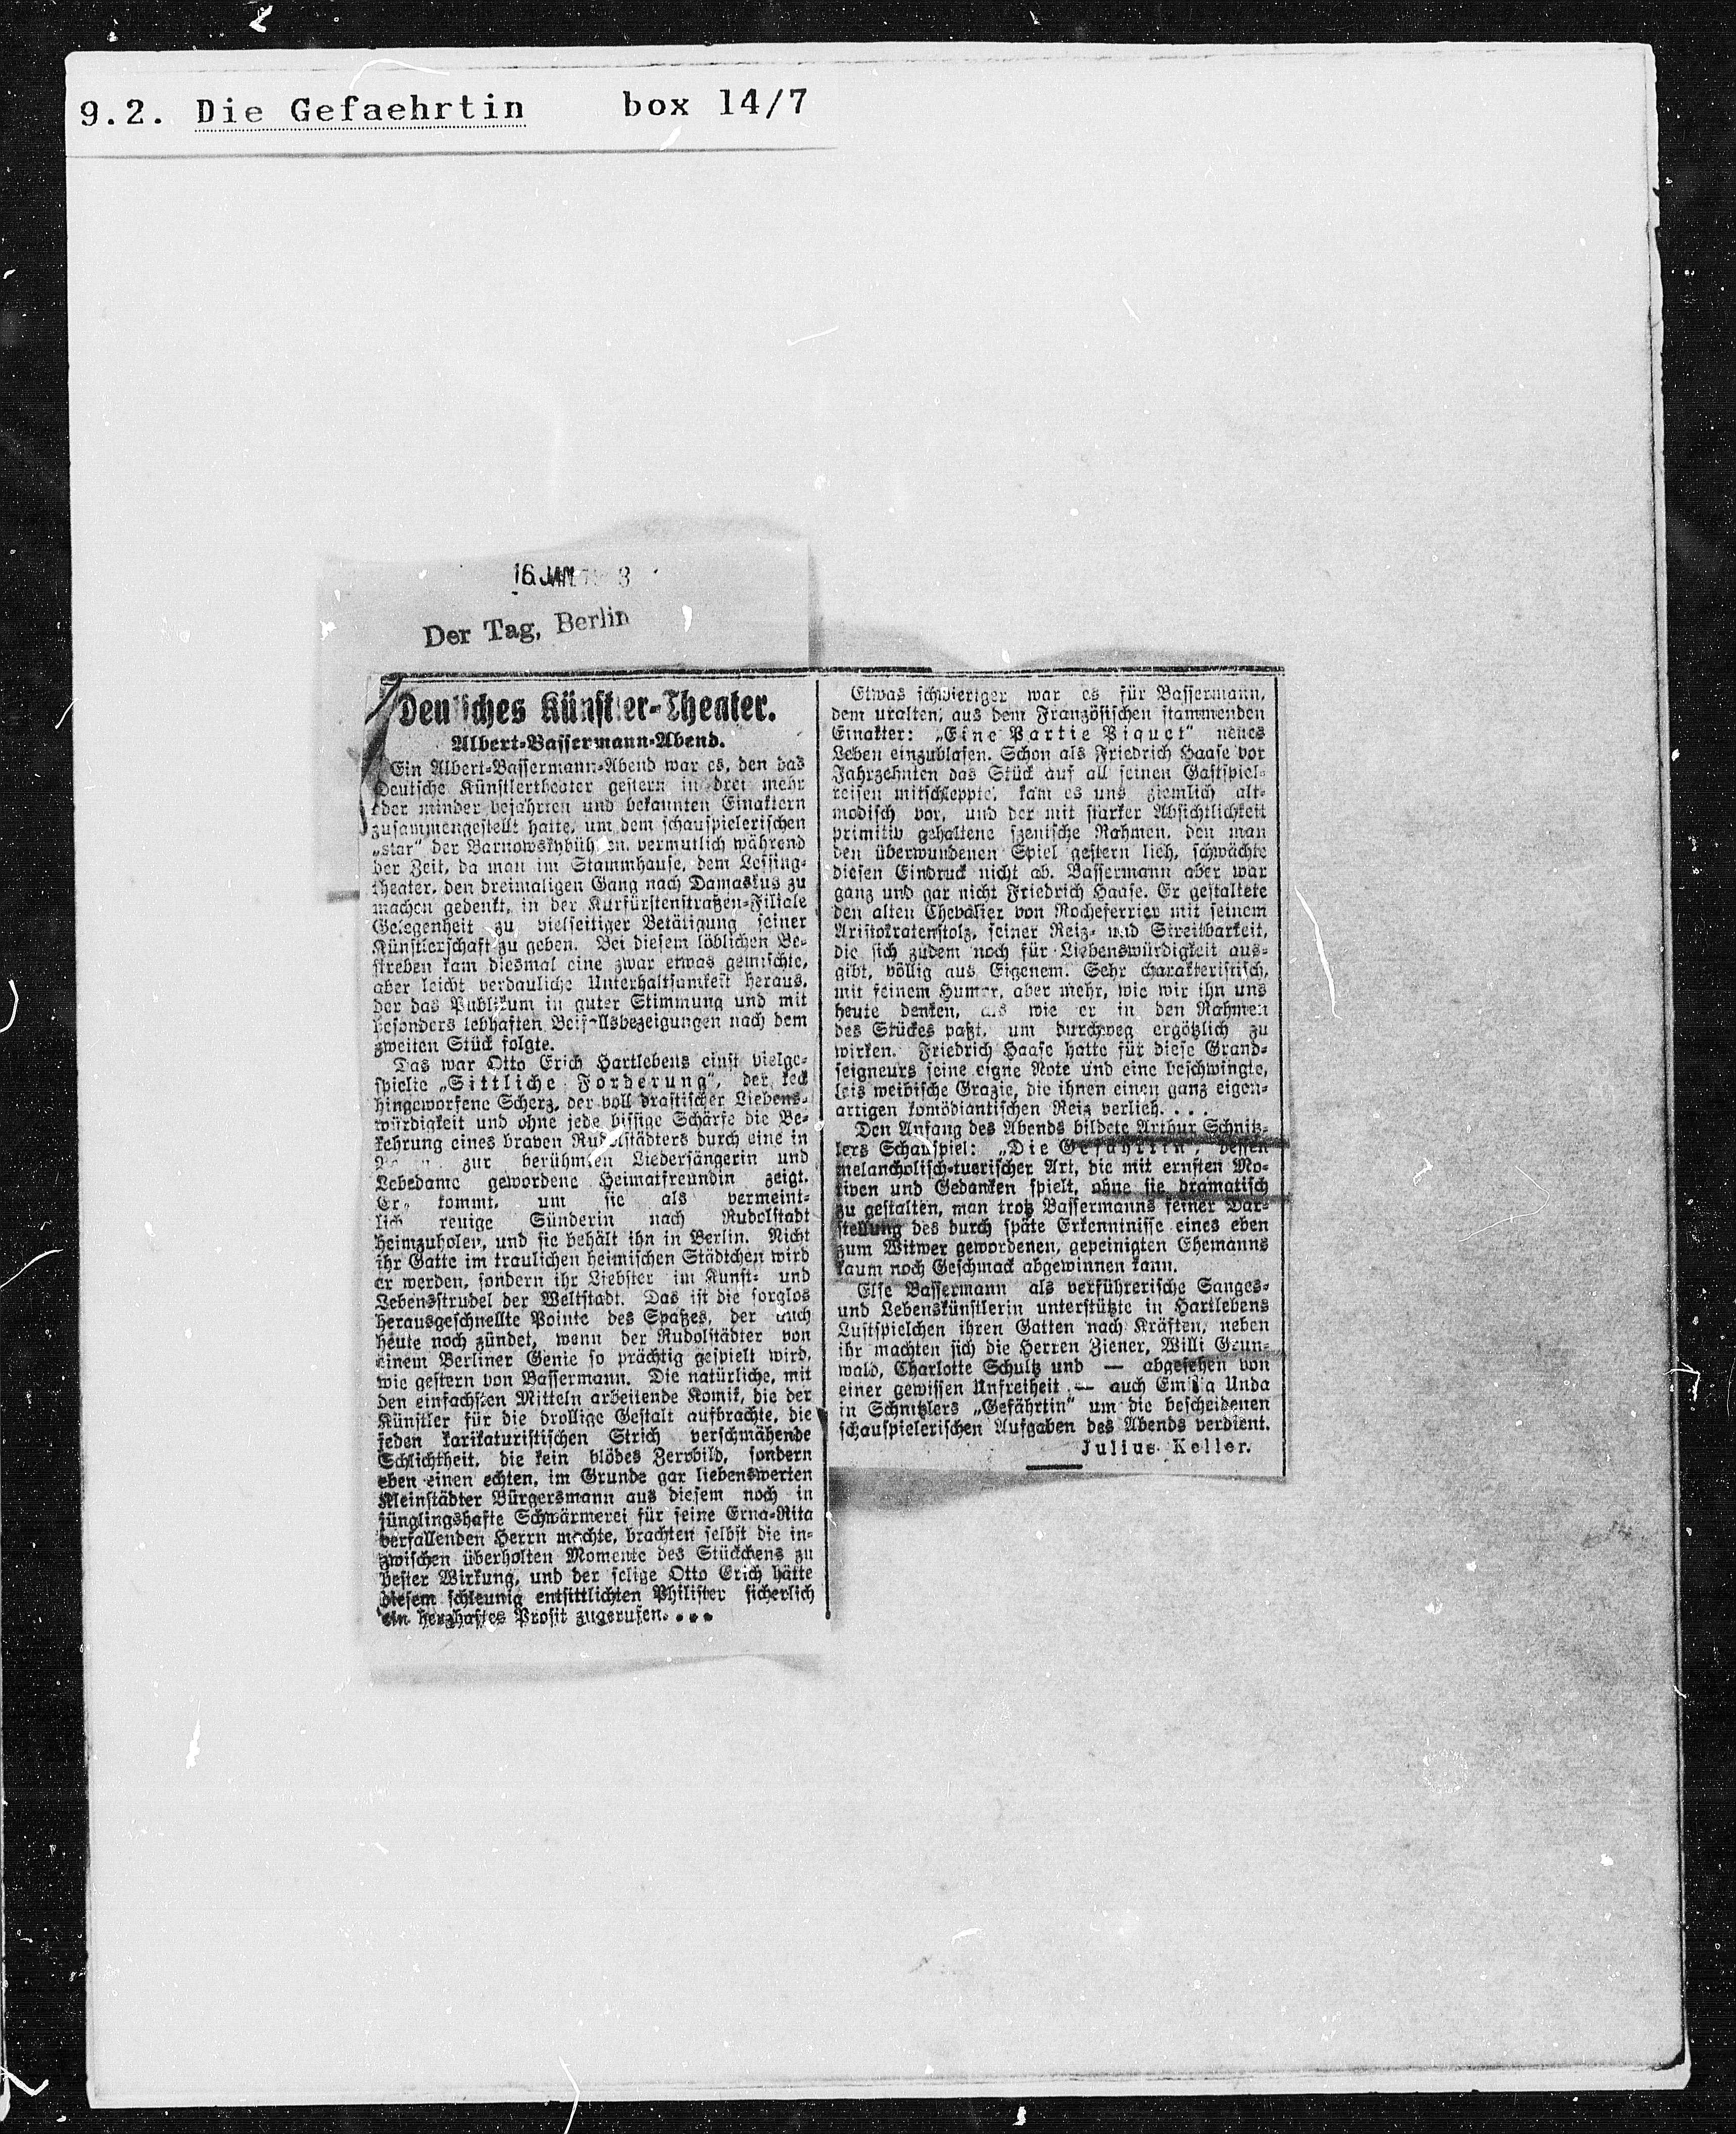 9.2. Die Gefaehrtin box 14/7
16. JAN. 3
Der Tag, Berlin
Deutsches Künstler-Theater.
Albert-Bassermann-Abend.
Ein Albert-Bassermann-Abend war es, den das
Deutsche Künstlertheater gestern in drei mehr
oder minder bejahrten und bekannten Einaktern
zusammengestellt hatte, um dem schauspielerischen
„star“ der Barnowskybühnen, vermutlich während
der Zeit, da man im Stammhause, dem Lessing-
theater, den dreimaligen Gang nach Damaskus zu
machen gedenkt, in der Kurfürstenstraßen-Filiale
Gelegenheit zu vielseitiger Betätigung seiner
Künstlerschaft zu geben. Bei diesem löblichen Be-
streben kam diesmal eine zwar etwas gemischte,
aber leicht verdauliche Unterhaltsamkeit heraus,
der das Publikum in guter Stimmung und mit
besonders lebhaften Beifallsbezeigungen nach dem
zweiten Stück folgte.
Das war Otto Erich Hartlebens einst vielge-
spielte „Sittliche Forderung“, der keck
hingeworfene Scherz, der voll drastischer Liebens-
würdigkeit und ohne jede bissige Schärfe die Be-
kehrung eines braven Rudolstädters durch eine in
zur berühmten Liedersängerin und
Lebedame gewordene Heimatfreundin zeigt.
Er kommt, um sie als vermeint-
lich reuige Sünderin nach Rudolstadt
heimzuholen, und sie behält ihn in Berlin. Nicht
ihr Gatte im traulichen heimischen Städtchen wird
er werden, sondern ihr Liebster im Kunst- und
Lebensstrudel der Weltstadt. Das ist die sorglos
herausgeschnellte Pointe des Spaßes, der auch
heute noch zündet, wenn der Rudolstädter von
einem Berliner Genie so prächtig gespielt wird,
wie gestern von Bassermann. Die natürliche, mit
den einfachsten Mitteln arbeitende Komik, die der
Künstler für die drollige Gestalt aufbrachte, die
jeden karikaturistischen Strich verschmähende
Schlichtheit, die kein blödes Zerrbild, sondern
eben einen echten, im Grunde gar liebenswerten
Kleinstädter Bürgersmann aus diesem noch in
jünglingshafte Schwärmerei für seine Erna-Rita
verfallenden Herrn machte, brachten selbst die in-
zwischen überholten Momente des Stückchens zu
bester Wirkung, und der selige Otto Erich hätte
diesem schleunig entsittlichten Philister sicherlich
ein herzhaftes Prosit zugerufen. . . .
Etwas schwieriger war es für Bassermann,
dem uralten, aus dem Französischen stammenden
Einakter: „Eine Partie Piquet“ neues
Leben einzublasen. Schon als Friedrich Haase vor
Jahrzehnten das Stück auf all seinen Gastspiel-
reisen mitschleppte, kam es uns ziemlich alt-
modisch vor, und der mit starker Absichtlichkeit
primitiv gehaltene szenische Rahmen, den man
den überwundenen Spiel gestern lieh, schwächte
diesen Eindruck nicht ab. Bassermann aber war
ganz und gar nicht Friedrich Haase. Er gestaltete
den alten Chevalier von Rocheferrier mit seinem
Aristokratenstolz, seiner Reiz- und Streitbarkeit,
die sich zudem noch für Liebenswürdigkeit aus-
gibt, völlig aus Eigenem. Sehr charakteristisch,
mit feinem Humor, aber mehr, wie wir ihn uns
heute denken, als wie er in den Rahmen
des Stückes paßt, um durchweg ergötzlich zu
wirken. Friedrich Haase hatte für diese Grand-
seigneurs seine eigne Note und eine beschwingte,
leis weibische Grazie, die ihnen einen ganz eigen-
artigen komödiantischen Reiz verlieh. . . .
Den Anfang des Abends bildete Arthur Schnitz-
lers Schauspiel: „Die Gefährtin“, dessen
melancholisch-tuerischer Art, die mit ernsten Mo-
tiven und Gedanken spielt, ohne sie dramatisch
zu gestalten, man trotz Bassermanns feiner Dar-
stellung des durch späte Erkenntnisse eines eben
zum Witwer gewordenen, gepeinigten Ehemanns
kaum noch Geschmack abgewinnen kann.
Else Bassermann als verführerische Sanges-
und Lebenskünstlerin unterstützte in Hartlebens
Lustspielchen ihren Gatten nach Kräften, neben
ihr machten sich die Herren Ziener, Willi Grun-
wald, Charlotte Schultz und — abgesehen von
einer gewissen Unfreiheit — auch Emilia Unda
in Schnitzlers „Gefährtin“ um die bescheidenen
schauspielerischen Aufgaben des Abends verdient.
Julius Keller.